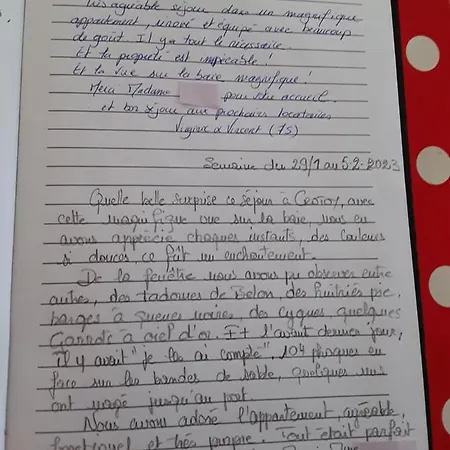 Très agréable séjour dans un magnifique
appartement, rénové et équipé avec beaucoup
de goût. Il y a tout le nécessaire.
Et la propreté est impécable!
Et la vue sur la baie, magnifique!
Merci Madame pour votre accueil
et bon séjour aux prochains locataires
Vincent (75)
Semaine du 29/1 au 5-2-2023
Quelle belle surprise ce séjour à Crotoy, avec
cette magnifique vue sur la baie, nous en
avons apprécié chaques instants, des couleurs
si douces, ce fût un enchantement.
De la fenêtre nous avons pu observer entre
autres, des tadornes de Belon, des huitriés pie,
barges à queues noires, des cygnes quelques
Garrots à œil d'or. Et l'avant dernier jour,
Il y avait "je les ai compté", 104 phoques en
face sur les bandes de sable, quelques uns
ont nagé jusqu'au port.
Nous avons adoré l'appartement, agréable,
fonctionnel et très propre. Tout était parfait